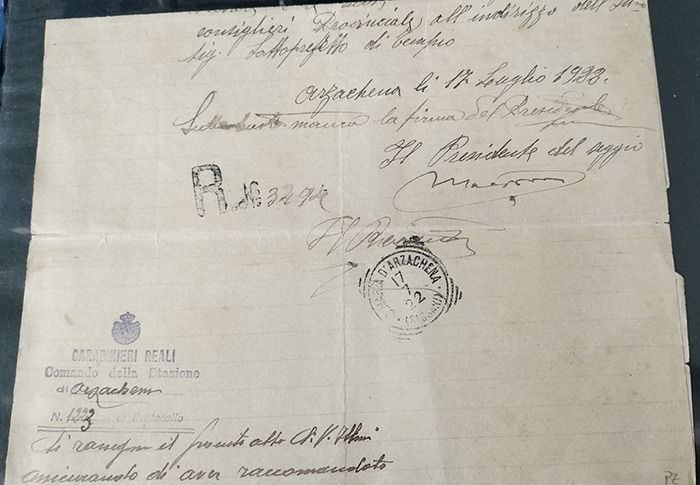 consiglieri Provinciale all'indirizzo dell'Ill
Sig. Sottoprefetto di Tempio
Arzachena li 17 Luglio 1922.
manca la firma del Presidente
Il Presidente del seggio
R. No 3294
Il Presidente
D'ARZACHENA
17
7
22
(SASSARI)
CARABINIERI REALI
Comando della Stazione
di Arzachena
N. 1223 di Protocollo
Si rassegna il alla S. V. Ill.ma
assicurando di aver raccomandato
PZ